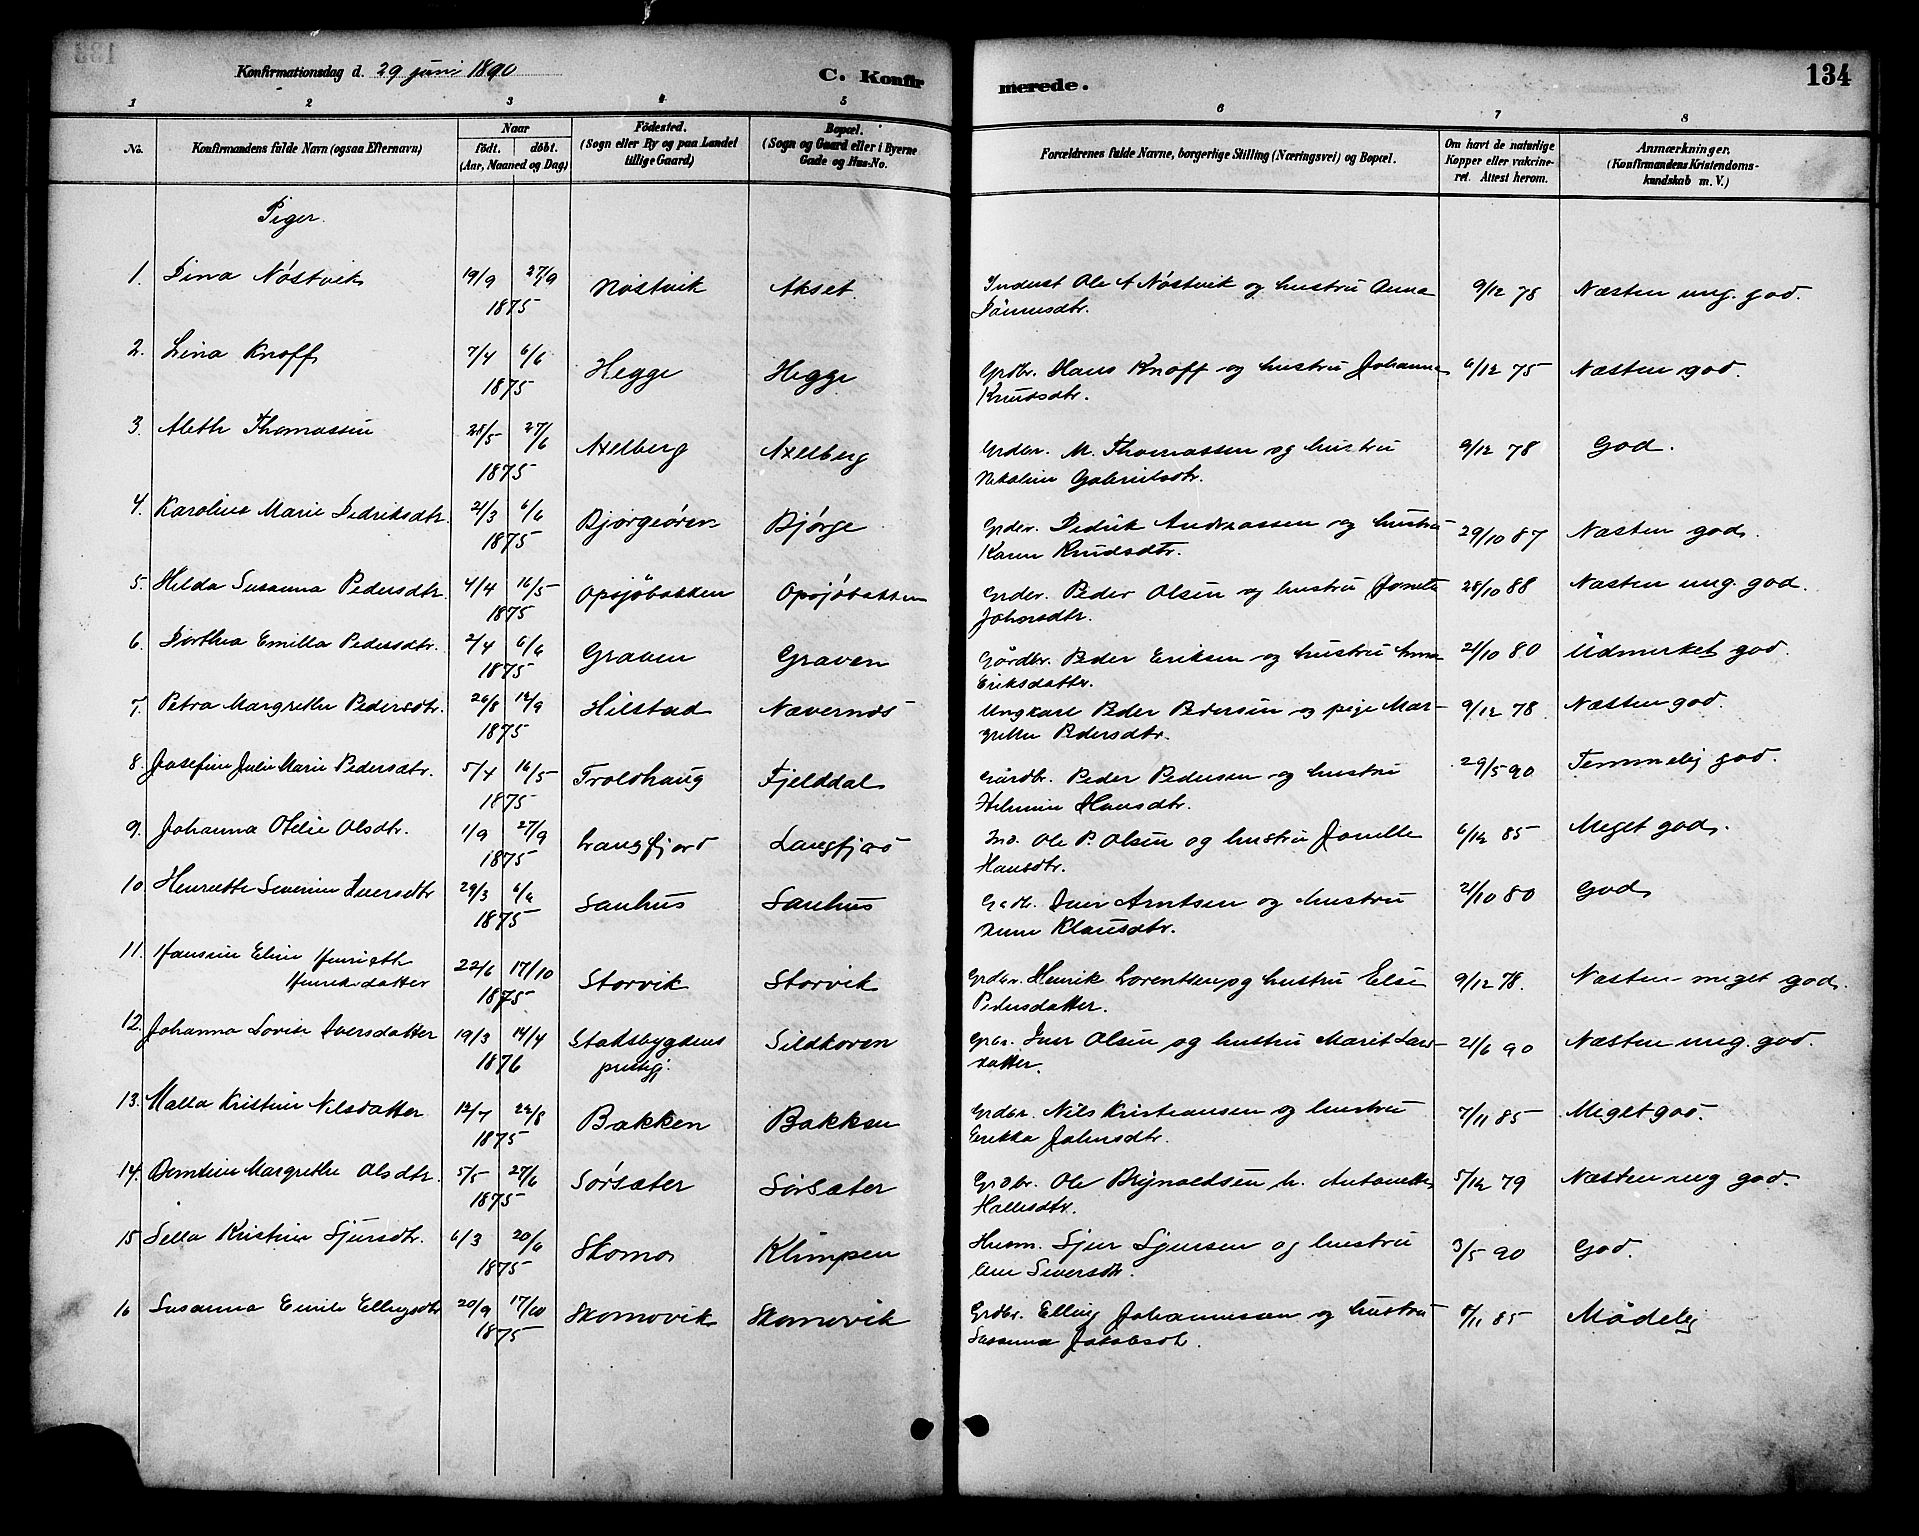 Konfirmationsdag d. 29 juni 1890
C. Konfir
merede.
134
1 2 3 4 5 6 7 8
No.
Konfirmandens fulde Navn (ogsaa Efternavn)
Naar
født. døbt.
(Aar, Maaned og Dag)
Födested.
(Sogn eller By og paa Landet
tillige Gaard)
Bopæl.
(Sogn og Gaard eller i Byerne
Gade og Hus-No.
Forældrenes fulde Navne, borgerlige Stilling (Næringsvei) og Bopæl.
Om havt de naturlige
Kopper eller vakcine-
ret. Attest herom.
Anmærkninger.
(Konfirmandens Kristendoms-
kundskab m. V.)
Piger.
1. Dina Nöstvik 19/9 27/9 Nöstvik Akset. Indust Ole A Nöstvik og hustru Anna 9/12 78 Næsten ung. god.
1875
2. Lina Knoff 7/4 6/6 Hegge Hegge Grdbr. Hans Knoff og hustru Johanna 6/12 75 Næsten god.
1875 Knudsdtr.
3. Aleth Thomassen 28/5 27/6 Axelberg Axelberg Grdbr. M. Thomassen og hustru 9/12 78 God.
1875 Nikoline Gabrielsdtr.
4. Karoline Marie Didriksdtr. 21/3 6/6 Bjørgeören Bjørge Grdbr. Didrik Andreassen og hustru 29/10 87 Næsten god.
1875 Karen Knudsdtr.
5. Hilda Susanna Pedersdtr. 4/4 16/5 Opsjöbakken Opsjöbakken Grdbr. Peder Olsen og hustru Jonette 28/10 88 Næsten ung. god.
1875 Johnsdtr.
6. Dorthea Emilla Pedersdtr. 2/4 6/6 Graven Graven Gårdbr. Peder Eriksen og hustru Anna 21/10 80 Udmerket god.
1875 Eriksdatter.
7. Petra Margrethe Pedersdtr. 26/8 12/9 Hilstad Nævernes Ungkarl Peder Pedersen og pige Mar- 9/12 78 Næsten god.
1875 grethe Pedersdtr.
8. Josefine Julie Marie Pedersdtr. 5/4 16/5 Troldhaug Fjelddal Gårdbr. Peder Pedersen og hustru 29/5 90 Temmelig god.
1875 Hansdtr.
9. Johanna Otelie Olsdtr. 1/9 27/9 Langfjord Langfjord Ind. Ole P. Olsen og hustru Jonette 6/12 85 Meget god.
1875 Hansdtr.
10. Henriette Severine Iversdtr 29/3 6/6 Sanhus Sanhus Gadb. Iver Arntsen og hustru 21/10 80 God
1875 Klausdtr.
11. Hansine Eline Henrieth
Henriksdatter 22/6 17/10 Storvik Storvik Grdbr. Henrik Lorentsen og hustru Else 9/12 78. Næsten meget god.
1875 Pedersdatter.
12. Johanna Lovise Iversdatter 19/3 14/4 Stadsbygdens Sildkoren Grbr. Iver Olsen og hustru Marit Lars- 21/6 90 Næsten ung. god.
1876 prestgj. datter.
13. Malla Kristine Nilsdatter 12/7 22/8 Bakken Bakken Grdbr. Nils Kristiansen og hustru 7/11 85 Meget god.
1875 Erikka Johnsdtr.
14. Margrethe Olsdtr. 5/5 27/6 Sørsæter Sørsæter Grdbr. Ole Brynoldsen h. Antonette 5/12 79 Næsten ung god.
1875 Hallesdtr.
15 Sella Kristine Sjursdtr. 6/3 20/6 Skomo Klimpen Husm. Sjur Sjursen og hustru 3/5 90 God.
1875 Siversdtr.
16 Susanna Emilie Ellingsdtr 20/9 17/10 Skomovik Skomovik Grdbr. Elling Johannessen og hustru 8/11 85 Mådelig
1875 Susanna Jakobsdt.